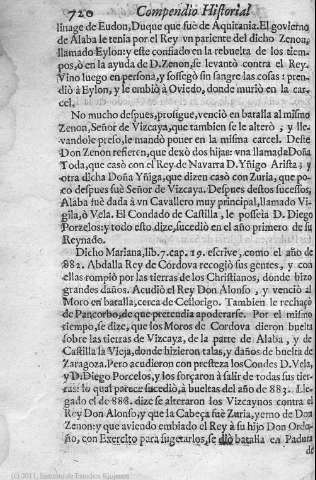 720 Compendio Historial
linage de Eudon, Duque que fuè de Aquitania. El govierno
de Alaba le tenia por el Rey vn pariente del dicho Zenon,
llamado Eylon: y este confiado en la rebuelta de los tiem-
pos, ò en la ayuda de D. Zenon, se levantò contra el Rey.
Vino luego en persona, y sossegò sin sangre las cosas: pren-
diò à Eylon, y le embiò à Oviedo, donde murio en la car-
cel.
No mucho despues, prosigue, venciò en batalla al mismo
Zenon, Señor de Vizcaya, que tambien se le alterò, y lle-
vandole preso, le mandò poner en la misma carcel. Deste
Don Zenon refieren, que dexò dos hijas: vna llamada Doña
Toda, que casò con el Rey de Navarra D. Yñigo Arista; y
otra dicha Doña Yñiga, que dizen casò con Zuria, que po-
co despues fuè Señor de Vizcaya. Despues destos sucessos,
Alaba fuè dada à vn Cavallero muy principal, llamado Vi-
gila, ò Vela. El Condado de Castilla, le posseia D. Diego
Porzelos: y todo esto, dize, sucediò en el año primero de su
Reynado.
Dicho Mariana, lib. 7. cap. 19. escrive, como el año de
882. Abdalla Rey de Córdova recogiò sus gentes, y con
ellas rompiò por las tierras de los Christianos, donde hizo
grandes daños. Acudiò el Rey Don Alonso, y venciò al
Moro en batalla, cerca de Cellorigo. Tambien le rechaçò
de Pancorbo, de que pretendia apoderarse. Por el mismo
tiempo, se dize, que los Moros de Cordova dieron buelta
sobre las tierras de Vizcaya, de la parte de Alaba, y de
Castilla la Vieja, donde hizieron talas, y daños de buelta de
Zaragoza. Pero acudieron con presteza los Condes D. Vela,
y D. Diego Porcelos, y los forçaron à salir de todas sus tier-
ras: lo qual parece sucediò, à bueltas del año de 883. Lle-
gado el de 888. dize se alteraron los Vizcaynos contra el
Rey Don Alonso, y que la Cabeça fuè Zuria, yerno de Don
Zenon: y que aviendo embiado el Rey à su hijo Don Ordo-
ño, con Exercito para sugetarlos, se diò batalla en Padura
de
(c) 2011, Instituto de Estudios Riojanos